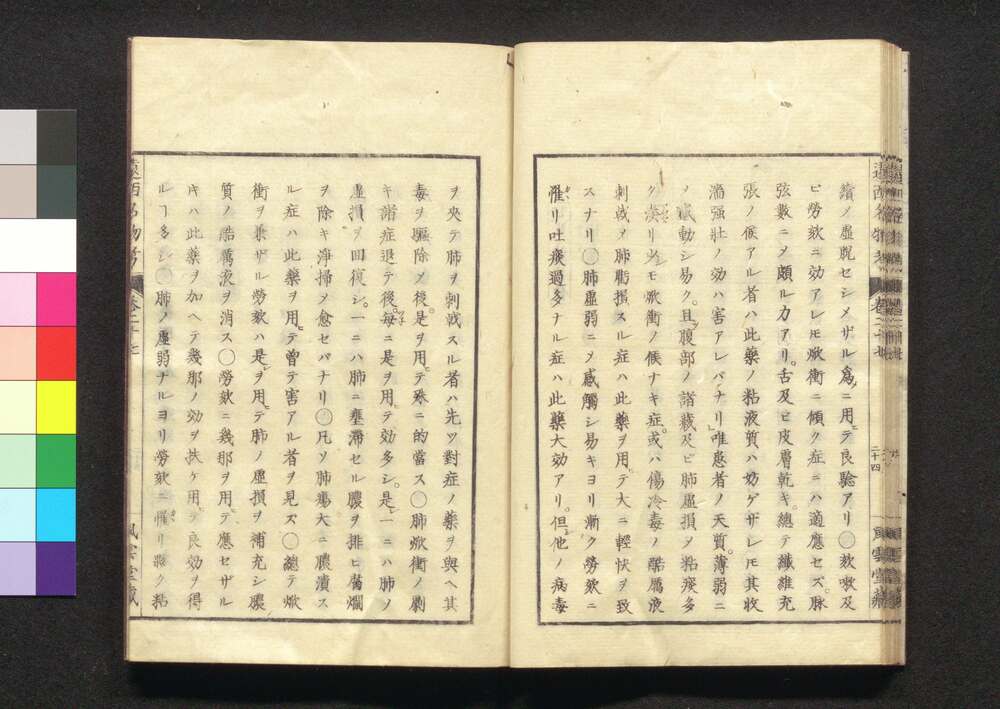 續メ虛脱セシメザル爲ニ用テ良驗アリ〇欬嗽及
ビ勞欬ニ効アレ𪜈焮衝ニ傾ク症ニハ適應セズ。脉
弦數ニメ頗ル力アリ。舌及ビ皮膚乾キ。總テ纖維充
張ノ候アル者ハ此藥ノ粘液質ハ妨ゲザレ𪜈其收
濇強壯ノ効ハ害アレバナリ唯患者ノ天質。薄弱ニ
ノ感動シ易ク。且ツ腹部ノ諸藏及ビ肺虛損ノ粘痰多
ク。湊リ𪜈焮衝ノ候ナキ症。或ハ傷冷毒ノ酷厲液
刺戟メ肺虧損スル症ハ此藥ヲ用テ大ニ輕快ヲ致
スナリ〇肺虛弱ニメ感觸シ易キヨリ漸ク勞欬ニ
罹リ吐痰過多ナル症ハ此藥大効アリ。但他ノ病毒
ヲ夾テ肺ヲ刺戟スル者ハ先ツ對症ノ藥ヲ與ヘ其
毒ヲ驅除メ後。是ヲ用テ殊ニ的當ス〇肺焮衝ノ劇
キ諸症退テ後。毎ニ是ヲ用テ効多シ。是一ニハ肺ノ
虛損ヲ囘復シ。一ニハ肺ニ壅滯セル膿ヲ排ヒ腐爛
ヲ除キ淨掃メ愈セバナリ〇凡ソ肺瘍大ニ膿潰ス
ル症ハ此藥ヲ用テ曾テ害アル者ヲ見ズ〇總テ焮
衝ヲ兼ザル勞欬ハ是ヲ用テ肺ノ虛損ヲ補充シ膿
質ノ酷厲液ヲ消ス〇勞欬ニ幾那ヲ用テ應セザル
𬼀ハ此藥ヲ加ヘテ幾那ノ効ヲ扶ケ用テ良効ヲ得
ルヿ多シ〇肺ノ虛弱ナルヨリ勞欬ニ罹リ漸ク粘
遠西名物考
卷二十七
二十四
風雲堂藏